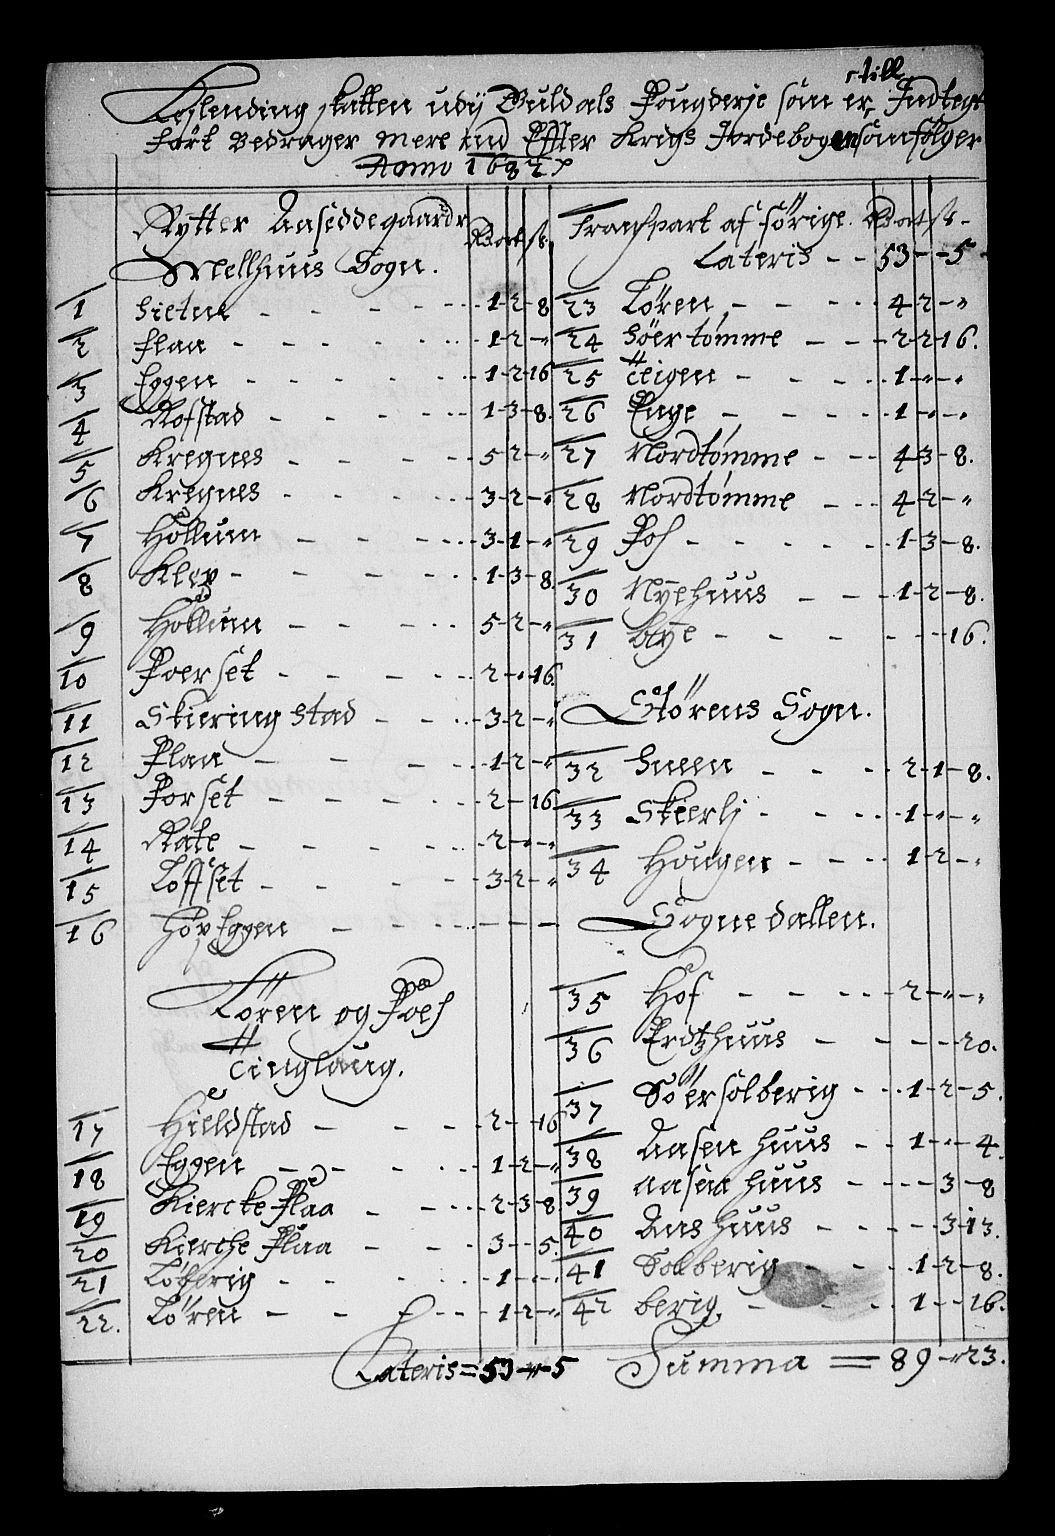 till
Leylending skatten udij Guldals Fougderje som er Indtegt
ført Bedrager mere end Effter Krigs Jordebogen som følger
Anno 1687
Rytter Aaseddegaardr
Mellhuus Sogn.
1 Sietne - - - 1-2-8
2 Flaa - - - 1-2-"
3 Eggen - - - 1-2-16
4 Rofstad - - - 1-3-8.
5 Kregnes - - - 5-2-"
6 Kregnes - - - 3-2-"
7 Hollum - - - 3-1-"
8 Klep - - - 1-3-8.
9 Hollum - - - 5-2-"
10 Foerset - - - 2-"-16.
11 Skieringstad - - - 3-2-"
12 Flaa - - - 1-2-"
13 Forset - - - 2--16
14 Rate - - - 2-"-"
15 Løffset - - - 3-2-"
16 Høyeggen - - - - - -
Løren og Foes
Tinglaug.
17 Hieldstad - - - 2--16
18 Eggen - - - 1-2-"
19 Kiercke Flaa - - - 2-3-8
20 Kierche Flaa - - - 3--5.
21 Løberig - - - 1-"-"
22. Løren - - - 1-2-"
Lateris = 53-"-5
Transpart af forige
Lateris - - 53--5
23 Løren - - - 4-2-"
24 Søer tømme - - - 2-2-16.
25 Tiigen - - - 1-"-"
26 Enge - - - 1-"-"
27 Nordtømme - - - 4-3-8.
28 Nordtømme - - - 4-2-"
29 Fos - - - 1-3-8.
30 Nyehuus - - - 1-2-8.
31 Bye - - - 16.
Størens Sogn.
32 Sneen - - - 2-1-8.
33 Skierlj - - - 1-"-"
34 Hougen - - - 1-2-"
Sognedallen.
35 Hof - - - 2-"-"
36 Fridzhuus - - - 20.
37 Søersolberig - - 1-2-5.
38 Aasenhuus - - 1-"-4
39 Aasenhuus - - - 3-8
40 Aashuus - - - 3-13.
41 Solberig - - - 1-2-8.
42 berig. - - - 1--16.
Summa = 89-"-23.